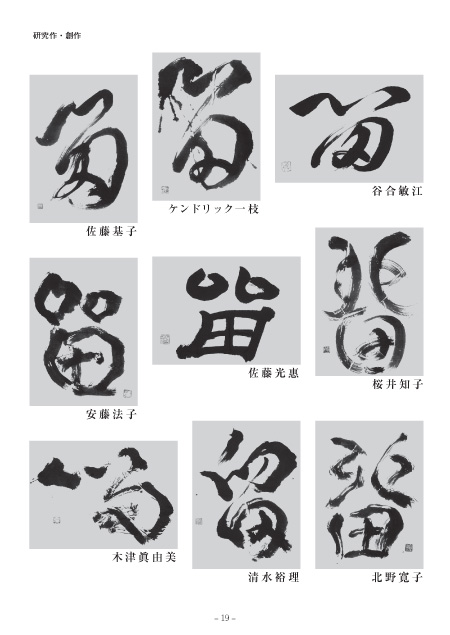 研究作・創作
留
留
留
佐藤基子
ケンドリック一枝
谷合敏江
留
留
留
安藤法子
佐藤光惠
桜井知子
留
留
留
木津眞由美
清水裕理
北野寛子
– 19 –